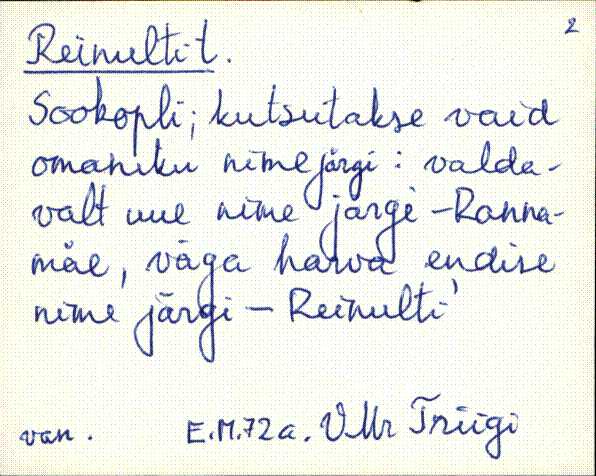 2
Reinulti t.
Sookopli; kutsutakse vaid
omaniku nime järgi: valda-
valt uue nime järgi - Ranna-
mäe, väga harva endise
nime järgi - Reinulti'
van. E.M. 72 a. VMr Triigi